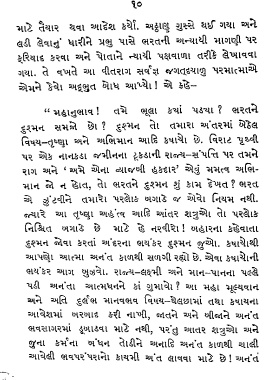 ૧૦
માટે તૈયાર થવા આદેશ કર્યો. અઠ્ઠાણુ ગુસ્સે થઈ ગયા અને
લડી લેવાનું ધારીને પ્રભુ પાસે ભરતની અન્યાયી માગણી પર
ફરિયાદ કરવા અને પોતાને ન્યાયી પક્ષવાળા તરીકે લેખાવવા
ગયા. તે વખતે આ વીતરાગ સર્વજ્ઞ જગતદયાળુ પરમાત્માએ
એમને કેવો અદ્ભુત બોધ આપ્યો! એ કહે–
“ મહાનુભાવ! તમે ભૂલા ક્યાં પડયા? ભરતને
દુશ્મન સમજો છો? દુશ્મન તો તમારા અંતરમાં બેઠેલ
વિષય-તૃષ્ણા અને અભિમાન આદિ કષાયો છે. વિરાટ પૃથ્વી
પર એક નાનકડા જમીનના ટૂકડાની રાજ્ય-સંપત્તિ પર તમને
રાગ અને ‘અમે એના વ્યાજબી હકદાર’ એવું મમત્વ અભિ-
માન જો ન હોત, તો ભરતને દુશ્મન શું કામ દેખત? ભરત
એ ઝુંટવીને તમારો પરલોક બગાડે જ એવો નિયમ નથી.
જ્યારે આ તૃષ્ણા અહંત્વ આદિ આંતર શત્રુઓ તો પરલોક
નિશ્ચિત બગાડે છે માટે હે નરવીરો! બહારના કહેવાતા
દુશ્મન જોવા કરતાં અંદરના ભયંકર દુશ્મન જુઓ. કષાયોથી
આપણો આત્મા અનંત કાળથી સળગી રહ્યો છે. એવા કષાયોની
ભયંકર આગ બુઝવો. રાજ્ય-લક્ષ્મી અને માન-પાનના પલ્લે
પડી અનંતા આત્મધનને કાં ગુમાવો? આ મહા મૂલ્યવાન
અને અતિ દુર્લભ માનવભવ વિષય-ઘેલછામાં તથા કષાયના
આવેશમાં બરબાદ કરી નાખી, જાતને અને બીજાને અનંત
ભવસાગરમાં ડૂબાડવા માટે નથી, પરંતુ આંતર શત્રુઓ અને
જુના કર્મના બંધન તોડીને અનાદિ અનંત કાળથી ચાલી
આવેલી ભવપરંપરાનો કાયમી અંત લાવવા માટે છે! અનંત